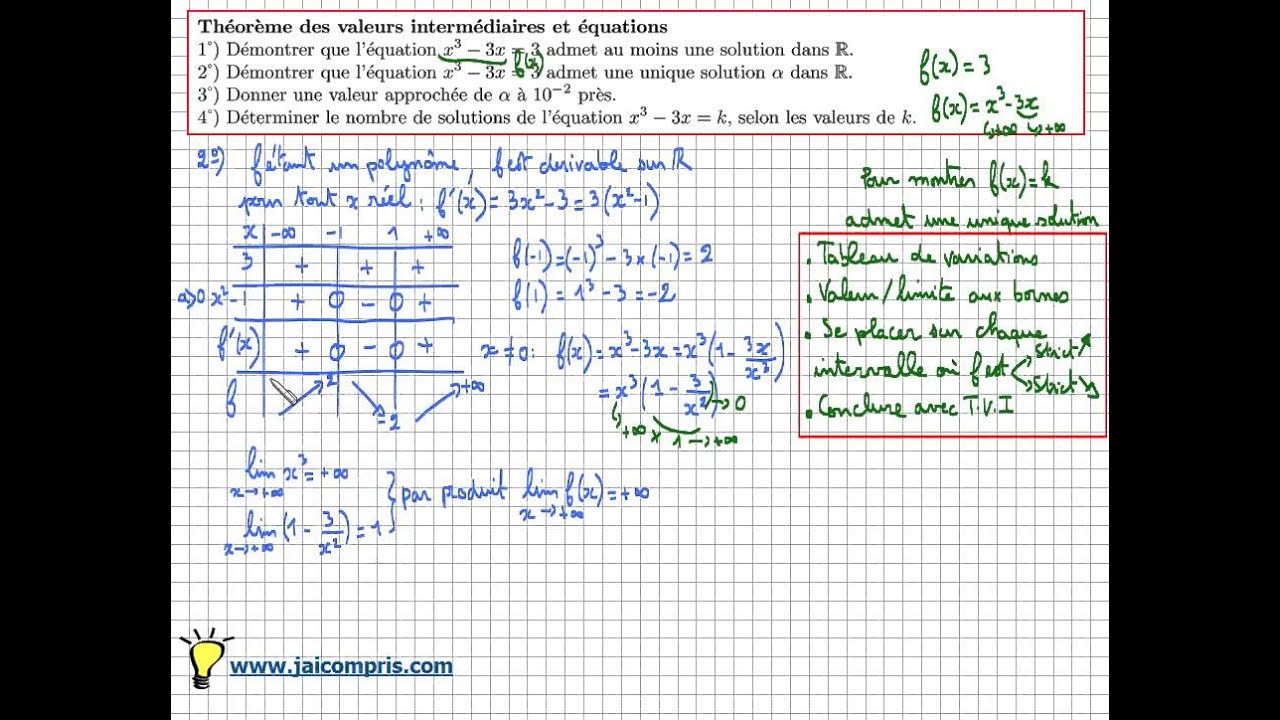 Théorème des valeurs intermédiaires et équations
1°) Démontrer que l'équation x³ − 3x = 3 admet au moins une solution dans ℝ.
f(x)
2°) Démontrer que l'équation x³ − 3x = 3 admet une unique solution α dans ℝ.
3°) Donner une valeur approchée de α à 10⁻² près.
4°) Déterminer le nombre de solutions de l'équation x³ − 3x = k, selon les valeurs de k.
f(x) = 3
f(x) = x³ - 3x
↳+∞ ↳+∞
2°) f étant un polynôme, f est derivable sur ℝ
pour tout x réel : f'(x) = 3x² - 3 = 3(x² - 1)
x -∞ -1 1 +∞
3 + + +
a>0 x² - 1 + 0 - 0 +
f'(x) + 0 - 0 +
f ↗ 2 ↘ -2 ↗ +∞
f(-1) = (-1)³ - 3×(-1) = 2
f(1) = 1³ - 3 = -2
x ≠ 0 : f(x) = x³ - 3x = x³(1 - 3x/x³)
= x³(1 - 3/x²) → 0
↳+∞ × 1 → +∞
lim x³ = +∞
x→+∞
lim (1 - 3/x²) = 1
x→+∞
} par produit lim f(x) = +∞
x→+∞
Pour montrer f(x) = k
admet une unique solution
• Tableau de variations
• Valeur/limite aux bornes
• Se placer sur chaque
intervalle où f est < strict ↗
strict ↘
• Conclure avec T.V.I
www.jaicompris.com